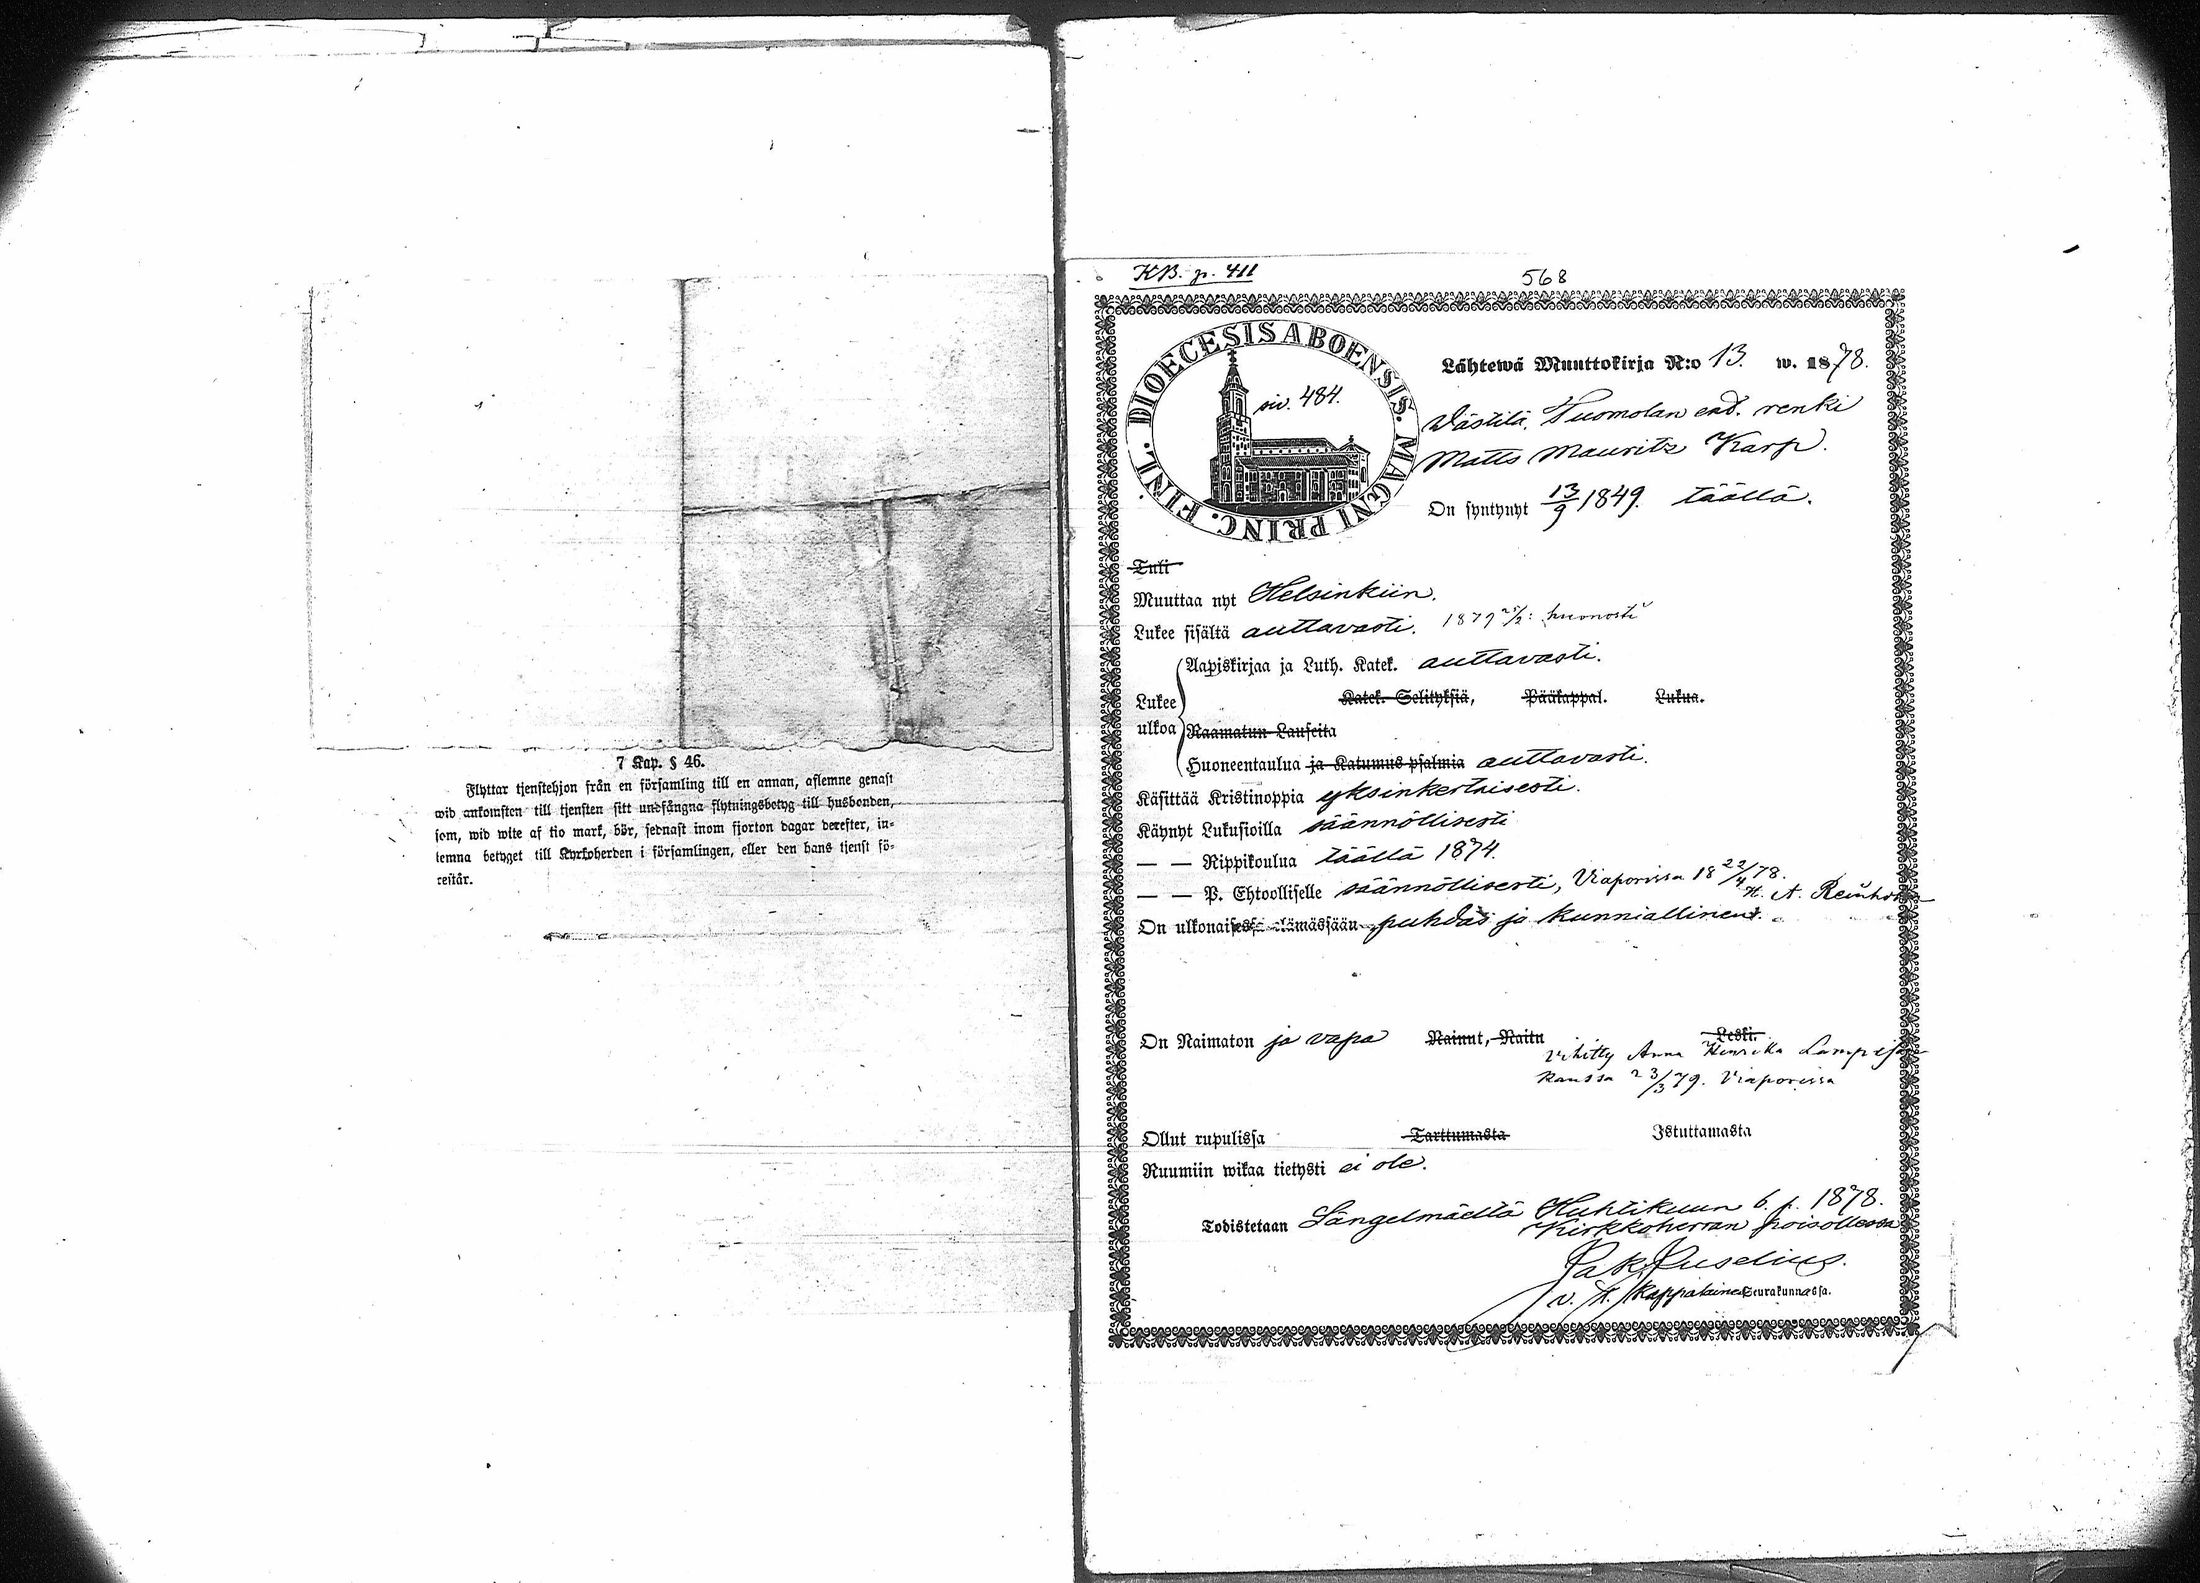 7 Kap. § 46.
Flyttar tjenstehjon från en församling till en annan, aflemne genast
wid ankomsten till tjensten sitt undfångna flytningsbetyg till husbonden,
som, wid wite af tio mark, bör, sednast inom fjorton dagar derefter, in-
lemna betyget till Kyrkoherden i församlingen, eller den hans tjenst fö-
restår.
KB. p. 411
568
DIOECESIS ABOENSIS. MAGNI PRINC. FINL.
siv. 484.
Lähtewä Muuttokirja N:o 13. w. 1878.
Västilä, Tuomolan end. renki
Matts Mauritz Karp.
On syntynyt 13/9 1849. täällä.
Tuli
Muuttaa nyt Helsinkiin.
Lukee sisältä auttavasti. 1879 huonosti
Aapiskirjaa ja Luth. Katek. auttavasti.
Lukee Katek. Selityksiä, Pääkappal. Lukua.
ulkoa Raamatun Lauseita
Huoneentaulua ja Katumus psalmia auttavasti.
Käsittää Kristinoppia yksinkertaisesti.
Käynyt Lukusioilla säännöllisesti
— — Rippikoulua täällä 1874.
— — P. Ehtoolliselle säännöllisesti, Viaporissa 18 22/4 78.
H. A. Reinholm
On ulkonaisessa elämässään puhdas ja kunniallinen.
On Naimaton ja vapa Nainut, Naitu Leski.
Vihitty Anna Henrika
kanssa 23/3 79. Viaporissa
Ollut rupulissa Tarttumasta Istuttamasta
Ruumiin wikaa tietysti ei ole.
Todistetaan Längelmäellä Huhtikuun 6 p. 1878.
Kirkkoherran poisollessa
v. Kappalainen Seurakunnassa.